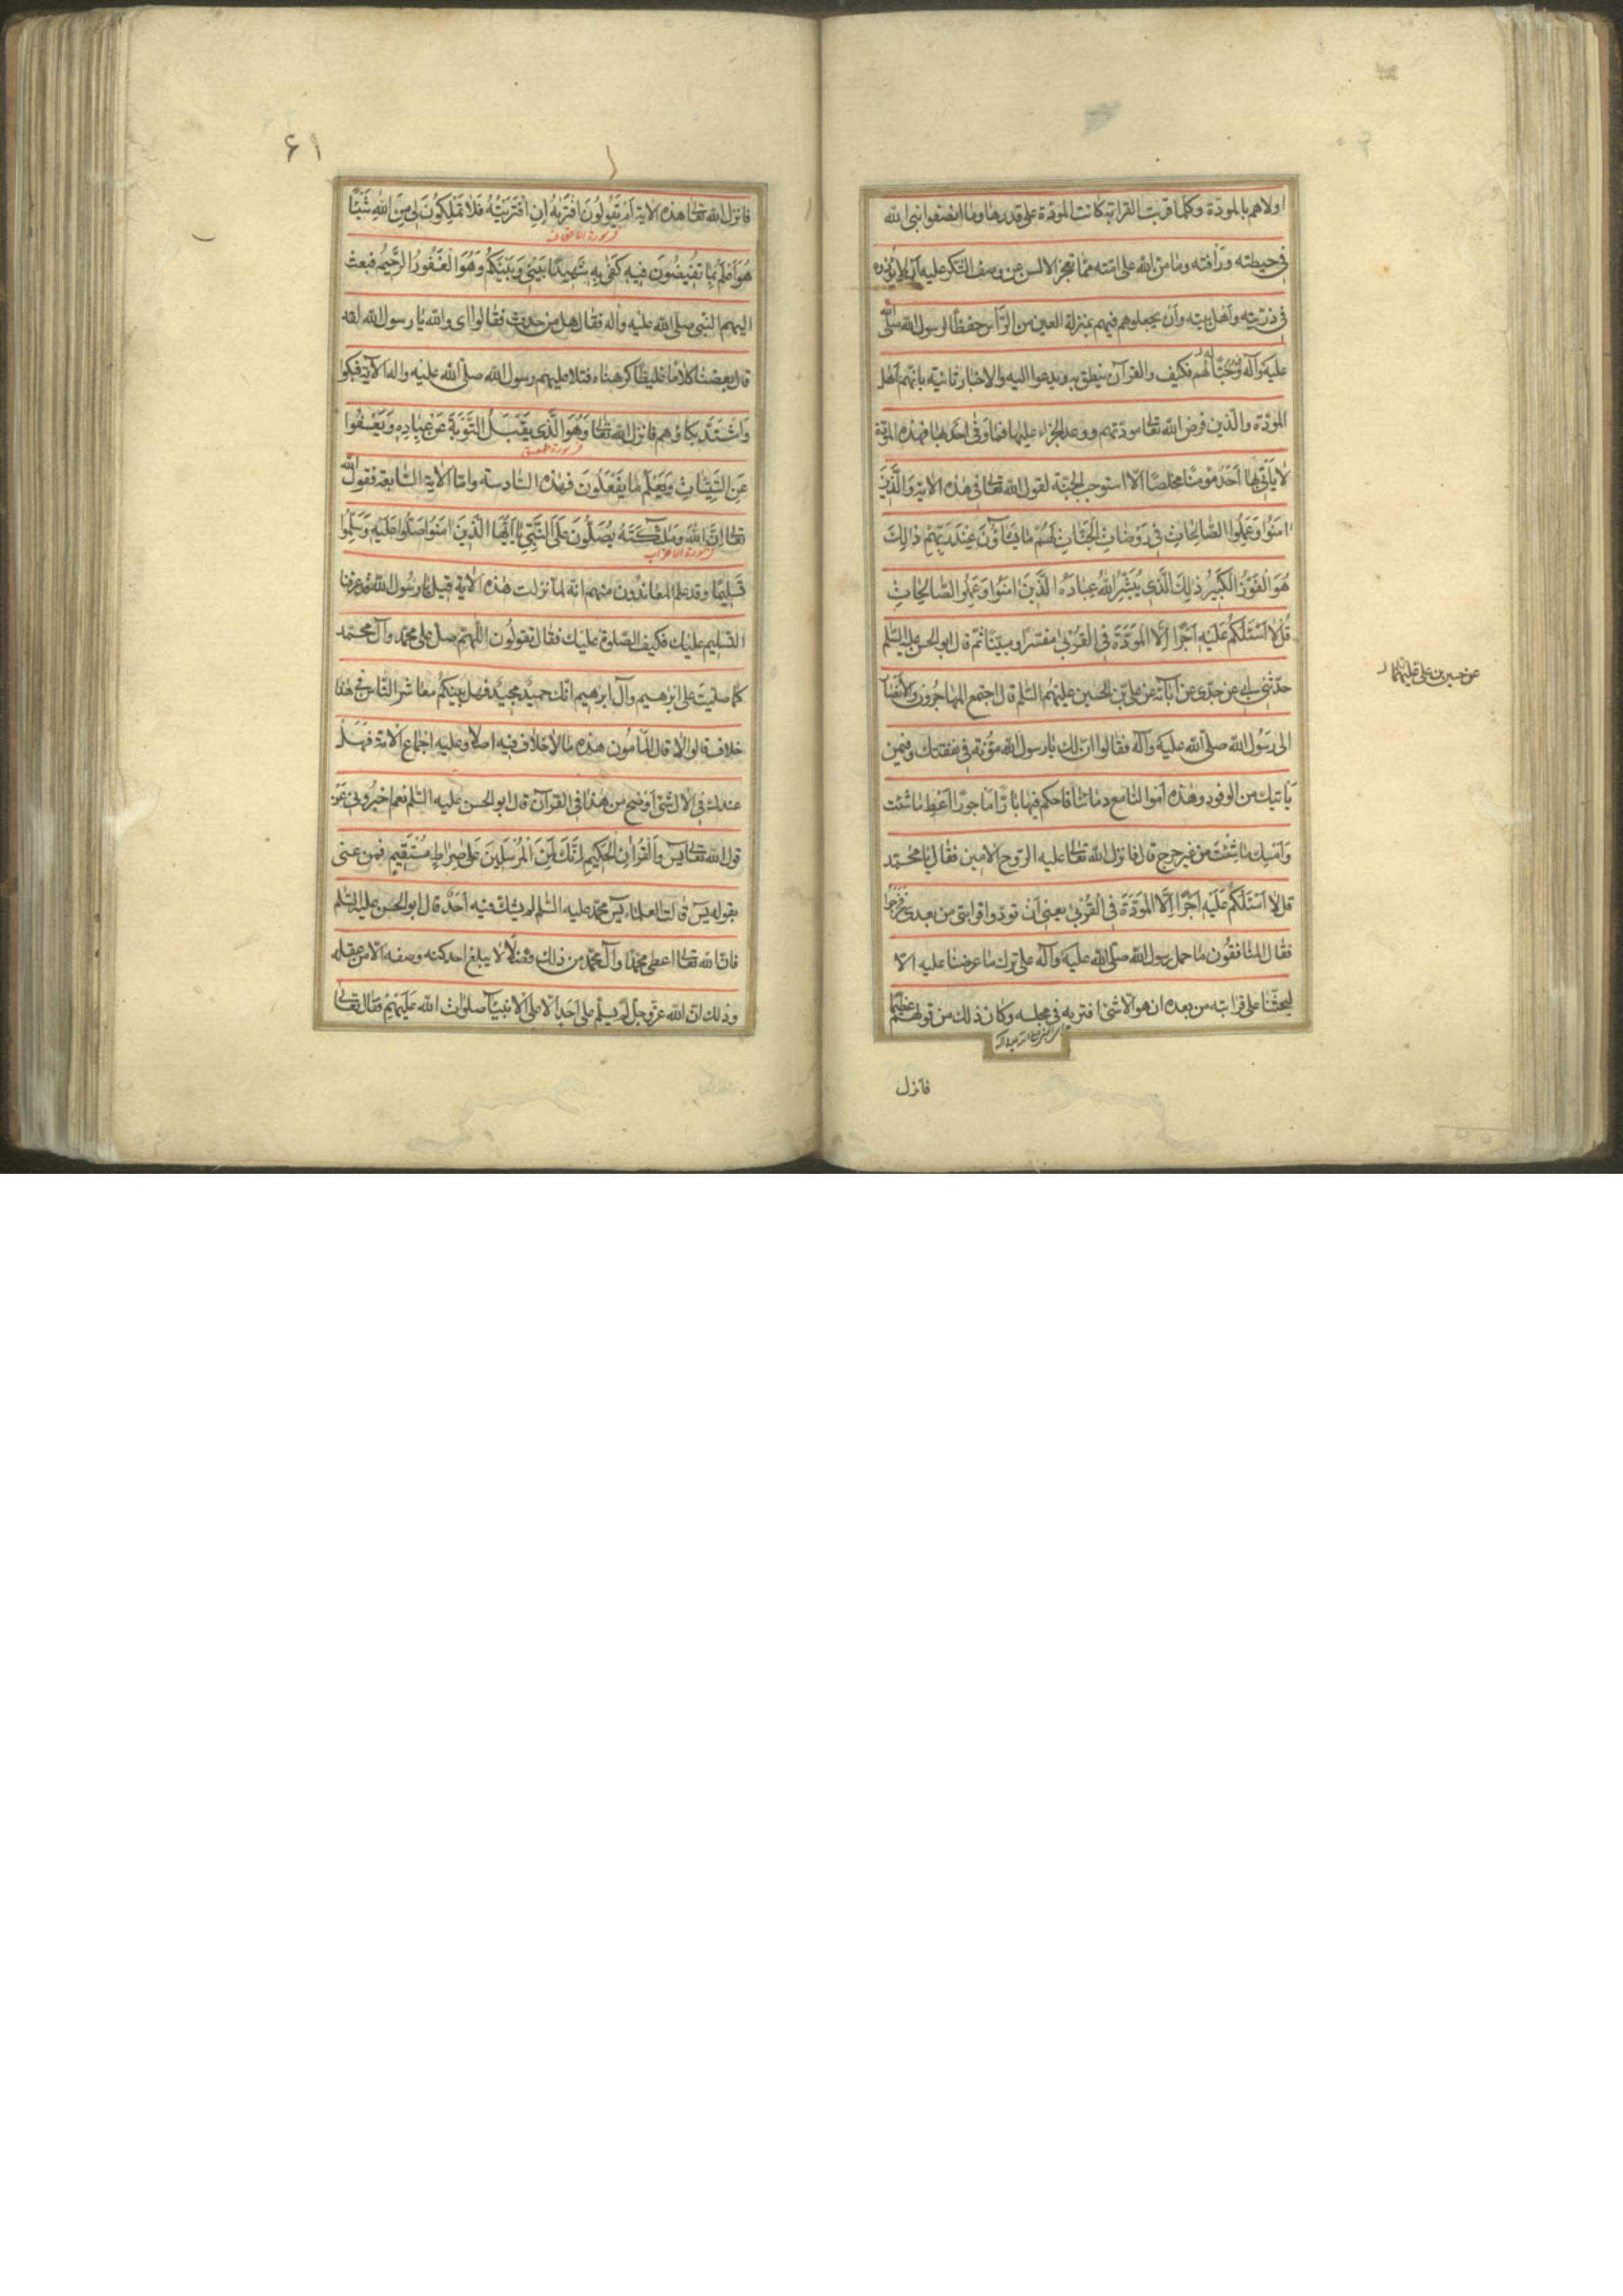 اولاهم بالمودّة وكلما قربت القرابة كانت المودّة على قدرها وما انصفوا نبى الله
فى حيطته ورأفته وما منّ الله على امّته ممّا تعجز الالسن عن وصف الشكر عليه ان لا يؤذوه
فى ذريّته وأهل بيته وأن يجعلوهم فيهم بمنزلة العين من الرّأس حفظًا لرسول الله صلّى الله
عليه وآله وحبًّا لهم فكيف والقرآن ينطق به ويدعوا اليه والاخبار ثابتة بانّهم أهل
المودّة والّذين فرض الله تعالى مودّتهم ووعد الجزاء عليها فما وفى احد بها فهذه المودّة
لا يأتى بها أحدٌ مؤمنًا مخلصًا الّا استوجب الجنّة لقول الله تعالى فى هذه الاية وَالَّذِينَ
امَنُوا وَعَمِلُوا الصَّالِحَاتِ فِى رَوْضَاتِ الْجَنَّاتِ لَهُمْ مَا يَشَاؤُنَ عِنْدَ رَبِّهِمْ ذَالِكَ
هُوَ الْفَوْزُ الْكَبِيرُ ذٰلِكَ الَّذِى يُبَشِّرُ اللهُ عِبَادَهُ الَّذِينَ امَنُوا وَعَمِلُوا الصَّالِحَاتِ
قُلْ لَا اَسْئَلُكُمْ عَلَيْهِ اَجْرًا اِلَّا الْمَوَدَّةَ فِى الْقُرْبٰى مفسّرا ومبيّنا ثمّ قال ابو الحسن عليه السّلم
حدّثنى ابى عن جدّى عن آبائه عن علىّ بن الحسين عليهم السّلم قال اجتمع المهاجرون والأنصار
عن حسين بن على عليهما
الى رسول الله صلّى الله عليه وآله فقالوا انّ لك يا رسول الله مؤنة فى نفقتك وفيمن
يأتيك من الوفود وهذه أموالنا مع دمائنا فاحكم فيها بارًّا مأجورًا اَعط ما شئت
وَاَمسِك ما شئت من غير حرج قال فانزل الله تعالى عليه الرّوح الامين فقال يا محمّد
قل لَا اَسْئَلُكُمْ عَلَيْهِ اَجْرًا اِلَّا الْمَوَدَّةَ فِى الْقُرْبٰى يعنى أن تودّوا قرابتى من بعدى فخرجوا
فقال المنافقون ما حمل رسول الله صلّى الله عليه وآله على ترك ما عرضنا عليه الّا
ليحثّنا على قرابته من بعده ان هو الّا شئ افتريه فى مجلسه وكان ذلك من قولهم عظيما
فانزل
٦١
فانزل الله تعالى هذه الاية اَمْ يَقُولُونَ افْتَرٰيهُ اِنِ افْتَرَيْتُهُ فَلَا تَمْلِكُونَ لِى مِنَ اللهِ شَيْئًا
در سورة الاحقاف
هُوَ اَعْلَمُ بِمَا تُفِيضُونَ فِيهِ كَفٰى بِهِ شَهِيدًا بَيْنِى وَبَيْنَكُمْ وَهُوَ الْغَفُورُ الرَّحِيمُ فبعث
اليهم النّبى صلى الله عليه وآله فقال هل من حدث فقالوا اى والله يا رسول الله لقد
قال بعضنا كلامًا غليظًا كرهناه فتلا عليهم رسول الله صلّى الله عليه واله الآية فبكوا
وَاشتدّ بكاؤهم فانزل الله تعالى وَهُوَ الَّذِى يَقْبَلُ التَّوْبَةَ عَنْ عِبَادِهِ وَيَعْفُوا
عَنِ السَّيِّئَاتِ وَيَعْلَمُ مَا يَفْعَلُونَ فهذه السّادسة وامّا الاية السّابعة فقول الله
تعالى اِنَّ اللهَ وَمَلٰئِكَتَهُ يُصَلُّونَ عَلَى النَّبِىِّ يَا اَيُّهَا الَّذِينَ امَنُوا صَلُّوا عَلَيْهِ وَسَلِّمُوا
در سورة الاحزاب
تَسْلِيمًا وقد علم المعاندون منهم انّه لمّا نزلت هذه الاية قيل يا رسول الله قد عرفنا
التّسليم عليك فكيف الصّلوة عليك فقال تقولون اللّهمّ صلّ على محمّد وآل محمّد
كما صلّيت على ابرهيم وآل ابرهيم انّك حميدٌ مجيدٌ فهل بينكم معاشر النّاس فى هذا
خلاف قالوا لا قال المأمون هذه ما لا خلاف فيه اصلا وعليه اجماع الامّة فهل
عندك فى الال شئ اوضح من هذا فى القرآن قال ابو الحسن عليه السّلم نعم اخبرونى عن
قول الله تعالى يس وَالْقُرْآنِ الْحَكِيمِ اِنَّكَ لَمِنَ الْمُرْسَلِينَ عَلٰى صِرَاطٍ مُسْتَقِيمٍ فمن عنى
بقوله يس قالت العلماء يس محمّد عليه السّلم لم يشكّ فيه أحدٌ قال ابو الحسن عليه السّلم
فانّ الله تعالى اعطى محمّدًا وآل محمّد من ذلك فضلًا لا يبلغ احد كنه وصفه الّا من عقله
وذلك انّ الله عزّوجلّ لم يسلّم على أحدٍ الّا على الانبياء صلوات الله عليهم فقال تعالى